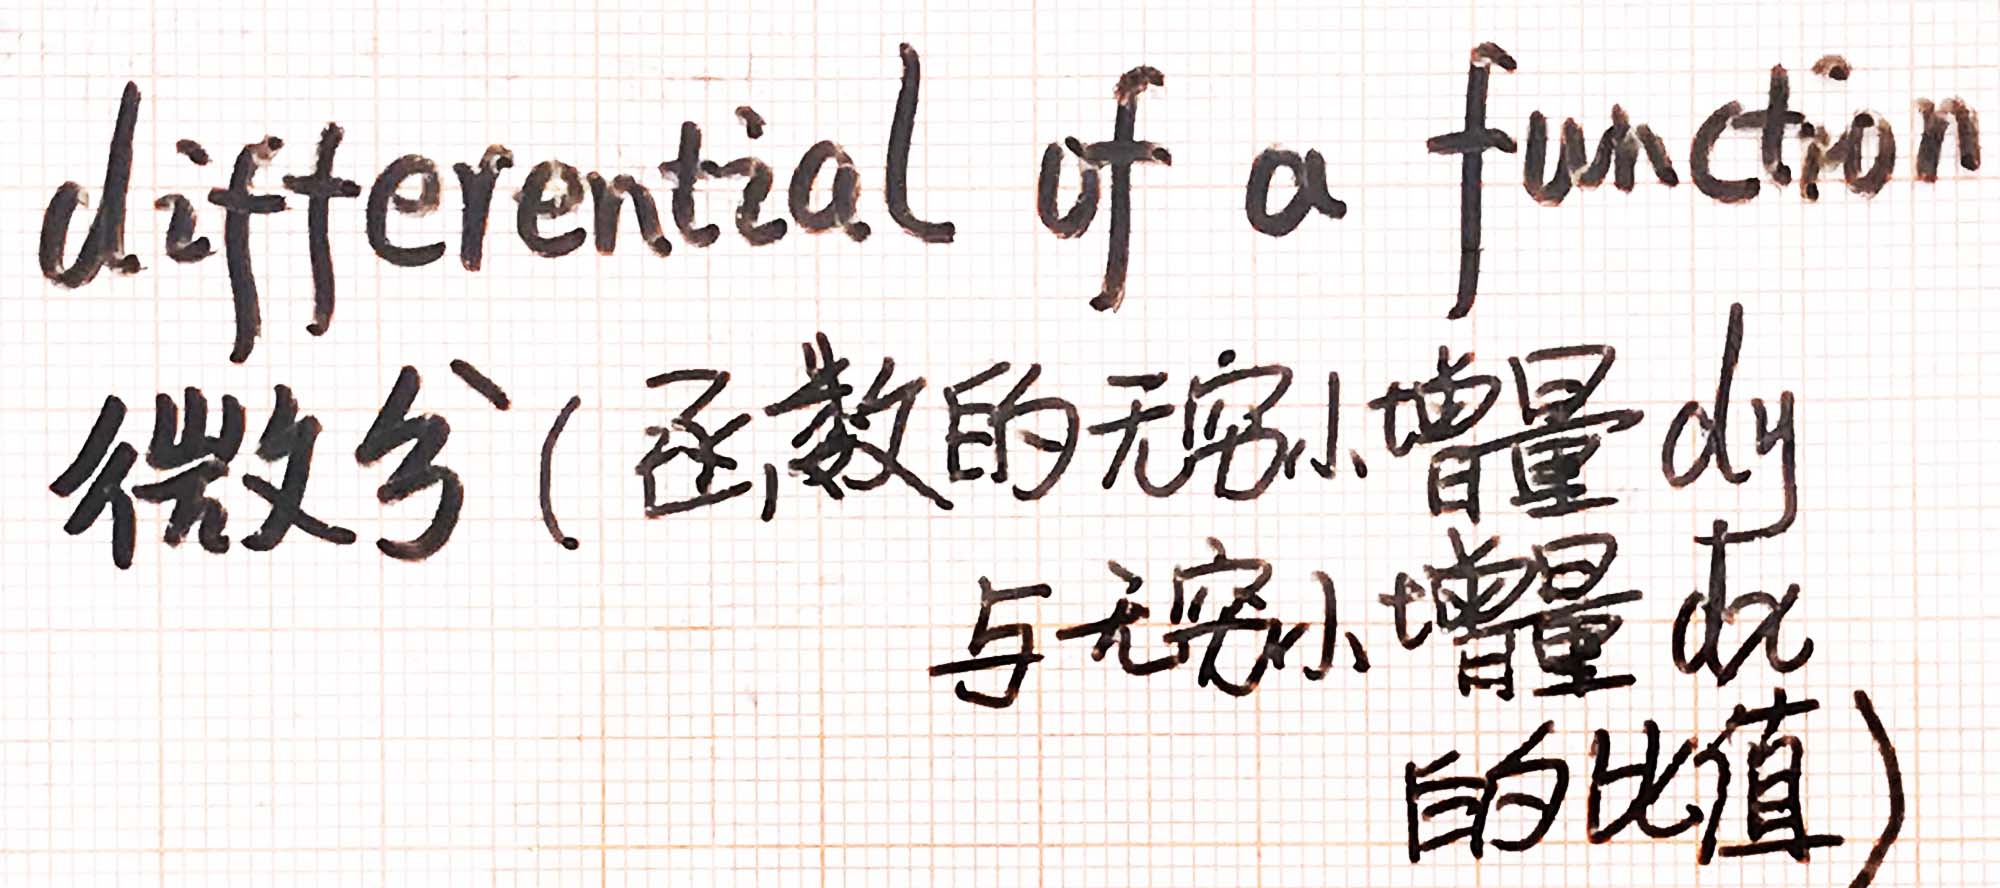 differential of a function
微分(函数的无穷小增量 dy
与无穷小增量 dx
的比值)